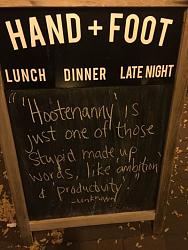 HAND + FOOT
LUNCH DINNER LATE NIGHT
"'Hootenanny' is
just one of those
stupid made up
words, like ambition
& productivity"
-unknown